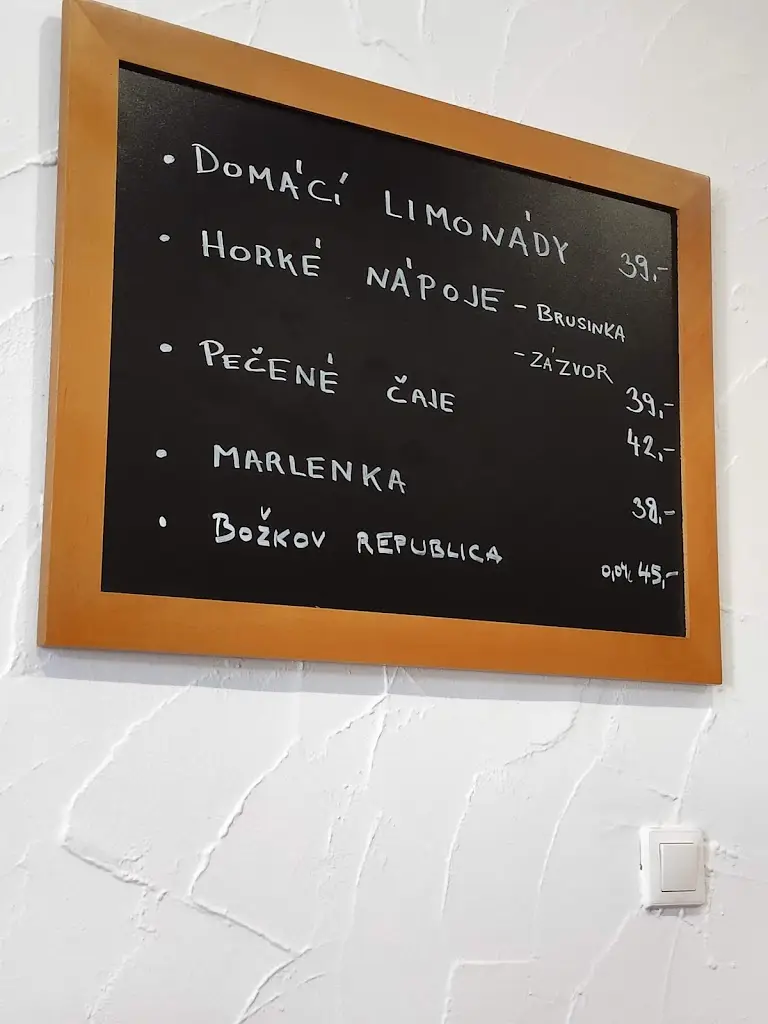 • DOMÁCÍ LIMONÁDY 39,-
• HORKÉ NÁPOJE - BRUSINKA
- ZÁZVOR 39,-
• PEČENÉ ČAJE 42,-
• MARLENKA 38,-
• BOŽKOV REPUBLICA 0,04l 45,-